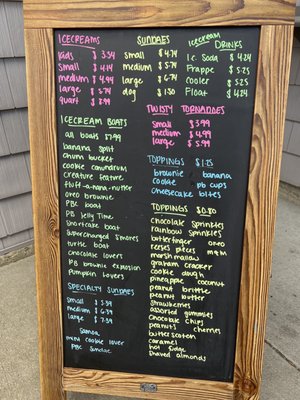 ICECREAMS
kids $ 3.54
small $ 4.14
medium $ 4.94
large $ 5.74
quart $ 8.99
SUNDAES
small $ 4.74
medium $ 5.74
large $ 6.74
dog $ 1.50
ICECREAM DRINKS
I.C. Soda $ 4.24
Frappe $ 5.25
Cooler $ 5.25
Float $ 4.24
TWISTY TORNADOES
small $ 3.99
medium $ 4.99
large $ 5.99
ICECREAM BOATS
all boats $7.99
banana split
chum bucket
cookie conundrum
creature feature
fluff-a-nutter
oreo brownie
PBC boat
PB Jelly Time
shortcake boat
supercharged s'mores
turtle boat
chocolate lovers
PB brownie explosion
Pumpkin lovers
TOPPINGS $1.25
brownie banana
cookie pb cups
cheesecake bites
TOPPINGS $0.80
chocolate sprinkles
rainbow sprinkles
butterfinger oreo
reeses pieces m&m
marshmallow
graham cracker
cookie dough
pineapple coconut
peanut brittle
peanut butter
strawberries
assorted gummies
chocolate chips
peanuts cherries
butterscotch
caramel
hot fudge
Shaved almonds
SPECIALTY SUNDAES
small $ 5.39
medium $ 6.39
large $ 7.39
Samoa
mini cookie lover
PBC Sundae